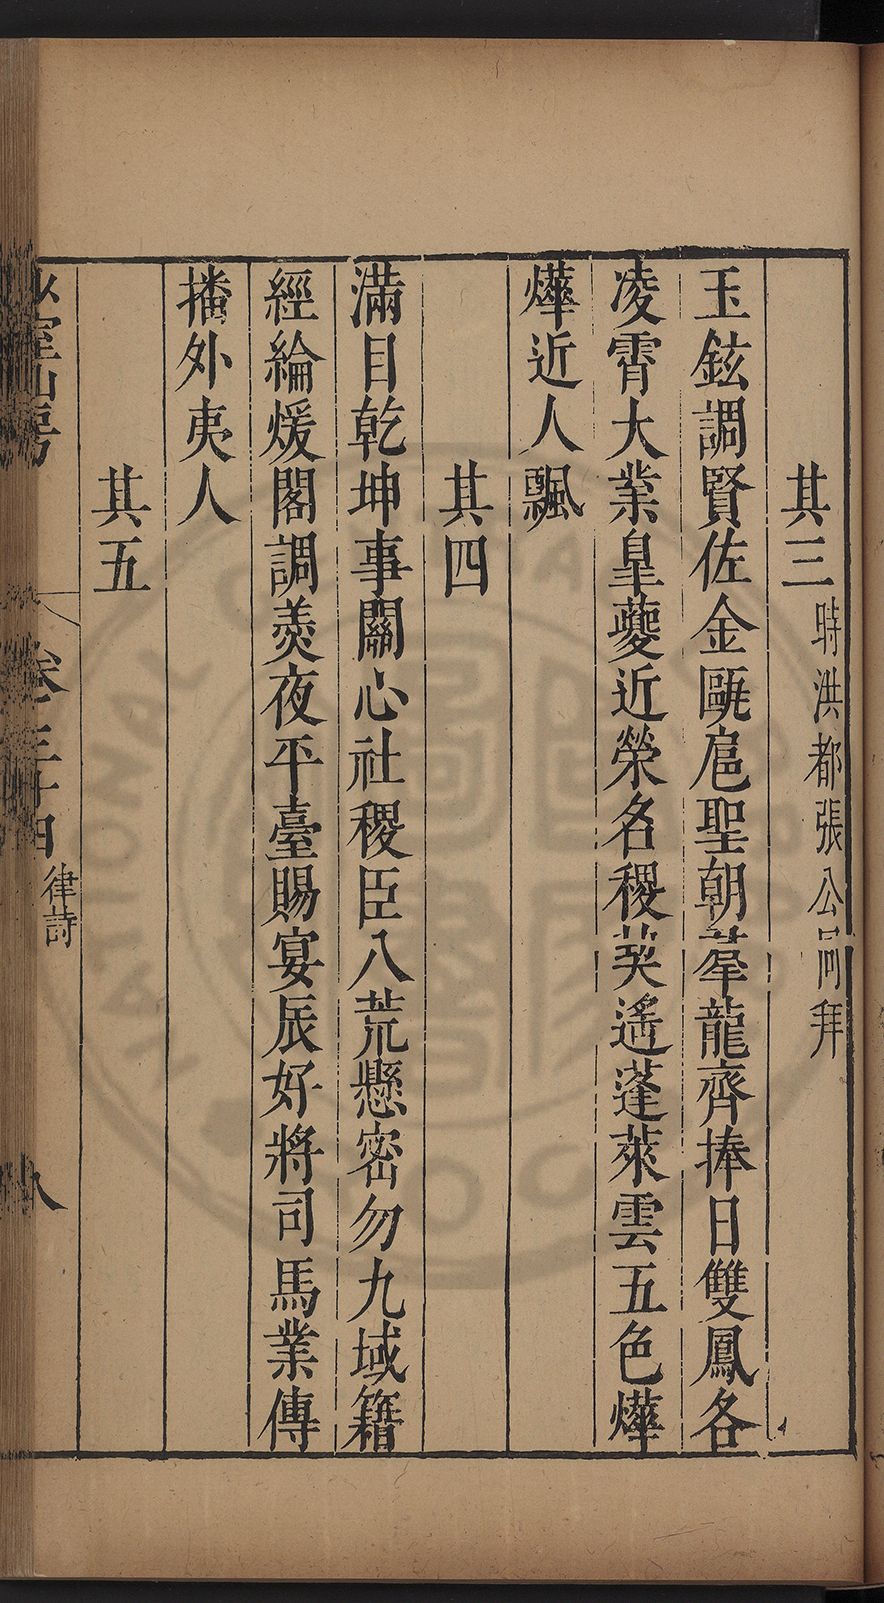 其三 時洪都張公同拜
玉鉉調賢佐金甌扈聖朝羣龍齊捧日雙鳳各
凌霄大業皇夔近榮名稷契遙蓬萊雲五色燁
燁近人飄
其四
滿目乾坤事關心社稷臣八荒懸密勿九域籍
經綸煖閣調羮夜平臺賜宴辰好將司馬業傳
播外夷人
其五
卷三十四 律詩 八